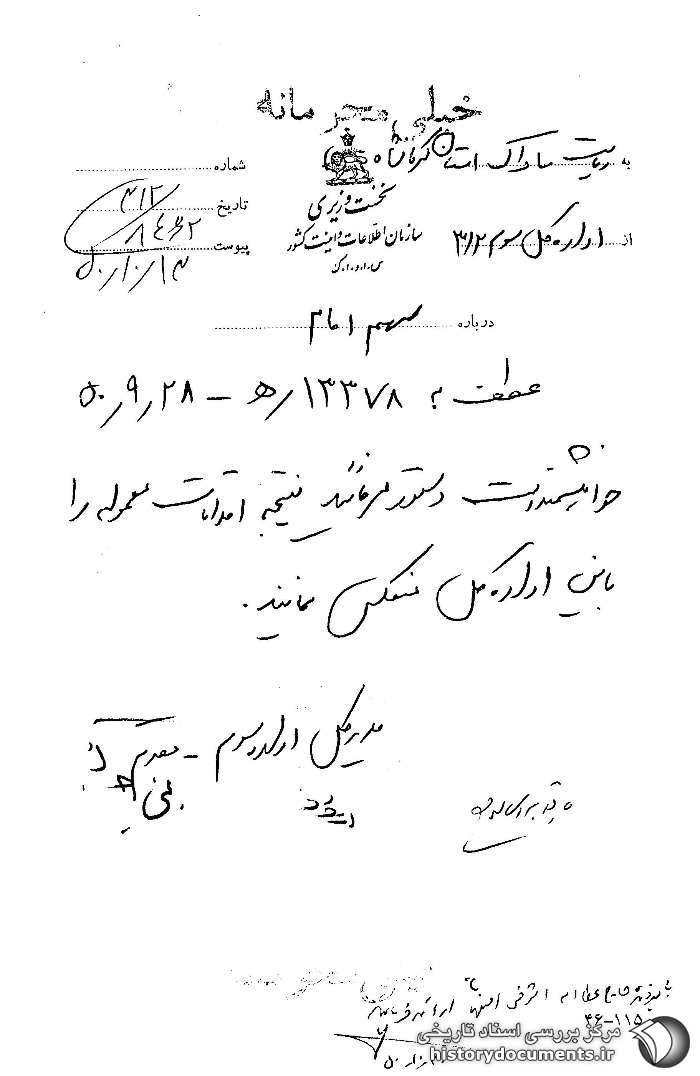 خیلی محرمانه
به ریاست ساواک استان کرمانشاه
از اداره کل سوم ۳۱۲
نخست وزیری
سازمان اطلاعات و امنیت کشور
س.ا.و.ا.ک
شماره ۳۱۲/
تاریخ
پیوست
۵۰/۱۰/۱۳
درباره سهم امام
عطف به ۱۳۳۷۸/ه‍ - ۵۰/۹/۲۸
خواهشمند است دستور فرمائید نتیجه اقدامات معموله را
باین اداره کل منعکس نمایند.
مدیر کل اداره سوم - مقدم
با پرونده عطااله اشرفی اصفهانی ارائه فرمائید
مرکز بررسی اسناد تاریخی
historydocuments.ir